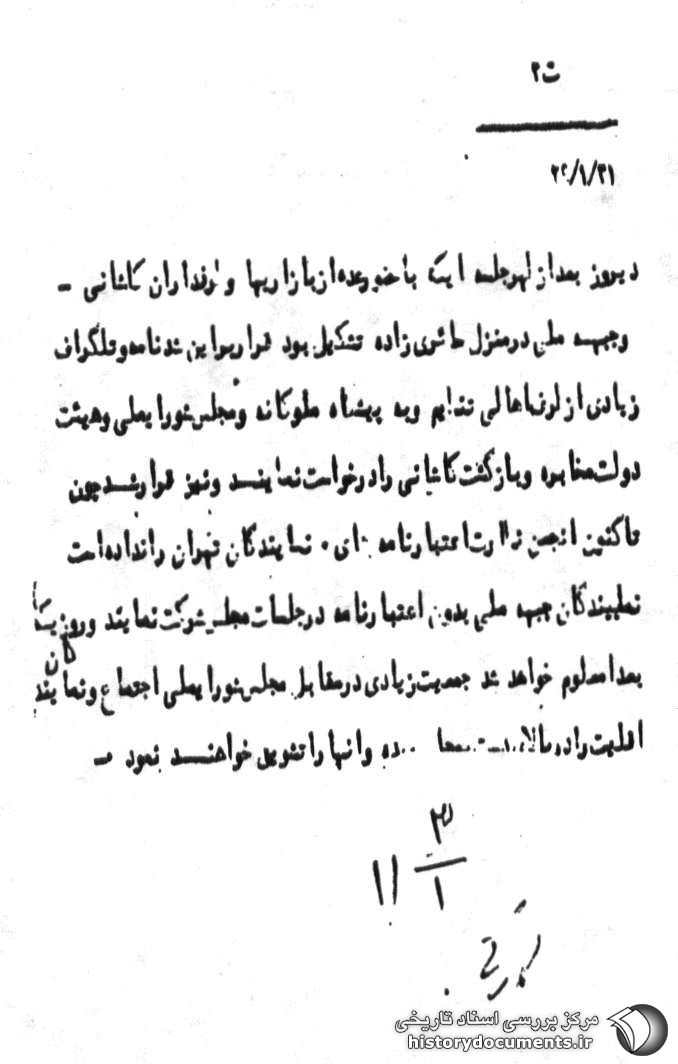 ت ۲
۲۹/۱/۳۱
دیروز بعد از ظهر جلسه ایکه با حضور عده از بازاریها و طرفداران کاشانی -
وجبهه ملی در منزل حائری زاده تشکیل بود قرار براین شد نامه و تلگراف
زیادی از طرف اهالی تنظیم وبه پیشگاه ملوکانه ومجلس شورایملی وهیئت
دولت مخابره وبازگشت کاشانی رادرخواست نمایند ونیز قرارشد چون
تاکنون انجمن نظارت اعتبارنامه های نمایندگان تهران رانداده است
نمایندگان جبهه ملی بدون اعتبارنامه در جلسات مجلس شرکت نمایند وروزیکه
بعدا معلوم خواهد شد جمعیت زیادی درمقابل مجلس شورایملی اجتماع ونمایندگان
اقلیت را وانها راتشویق خواهند نمود -
۳
۱
۱۱
مرکز بررسی اسناد تاریخی
historydocuments.ir